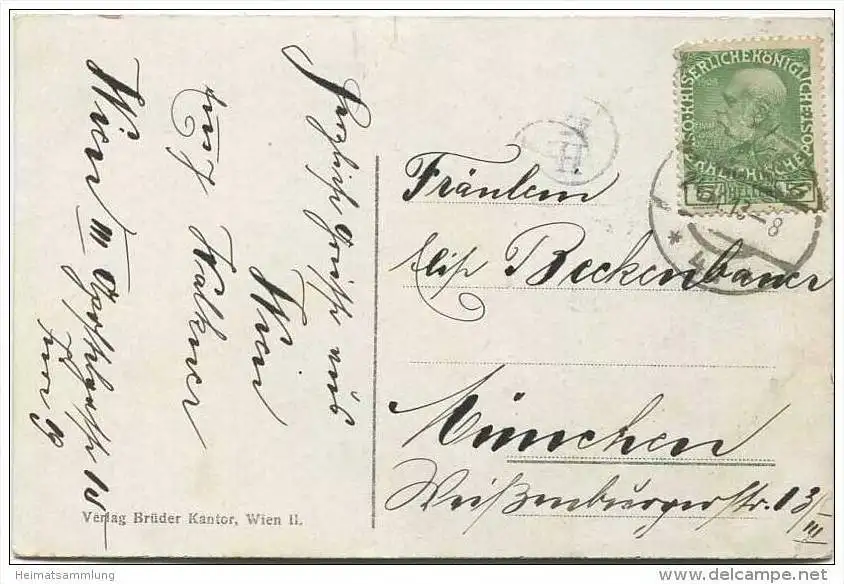 Herzliche Grüße aus
Wien
Kalkner
Wien III
Verlag Brüder Kantor, Wien II.
KAISERLICHE KÖNIGLICHE ÖSTERREICHISCHE POST
5 HELLER 5
H.
13-8
* 4
Fräulein
Elise Beckenbauer
München
Weißenburgerstr. 13/III
Heimatsammlung
http://www.delcampe.net